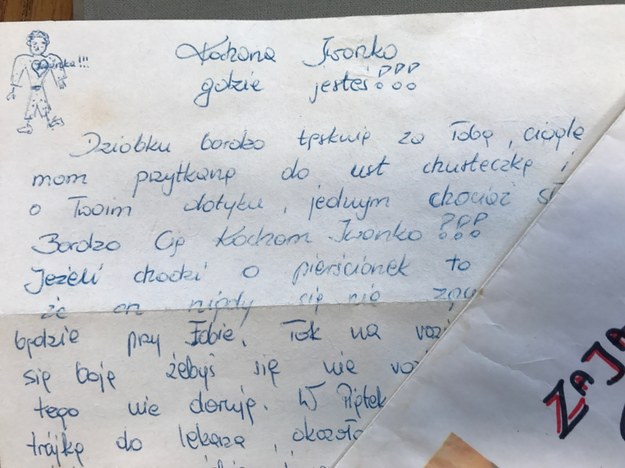 Kochana Iwonko
gdzie jesteś???
Dziobku bardzo tęsknię za Tobą, ciągle
mam przytkaną do ust chusteczkę i
o Twoim dotyku, jednym chociaż
Bardzo Cię Kocham Iwonko???
Jeżeli chodzi o pierścionek to
że on nigdy się nie
będzie przy Tobie. Tak na
się boję żebyś się nie
tego nie daruję. W Piątek
trójkę do lekarza, okazało
ZAJA